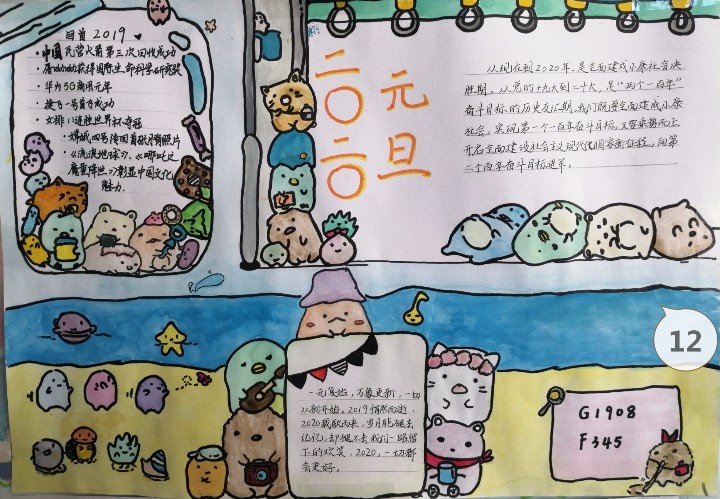 回首2019
·中国民营火箭第三次回收成功
·屠呦呦获得国际生命科学研究奖
·华为5G商用元年
·捷飞一号首飞成功
·女排11连胜世界杯夺冠
·嫦娥四号传回首张月背照片
·《流浪地球》、《哪吒之
魔童降世》彰显中国文化
魅力.
二〇二〇
元旦
从现在到2020年,是全面建成小康社会决
胜期。从党的十九大到二十大,是“两个一百年”
奋斗目标的历史交汇期。我们既要全面建成小康
社会、实现第一个一百年奋斗目标,又要乘势而上
开启全面建设社会主义现代化国家新征程,向第
二个百年奋斗目标进军。
12
一元复始,万象更新,一切
从新开始。2019悄然而逝,
2020载歌而来,岁月能褪去
记忆,却褪不去我们一路留
下的欢笑,2020,一切都
会更好。
G1908
F345